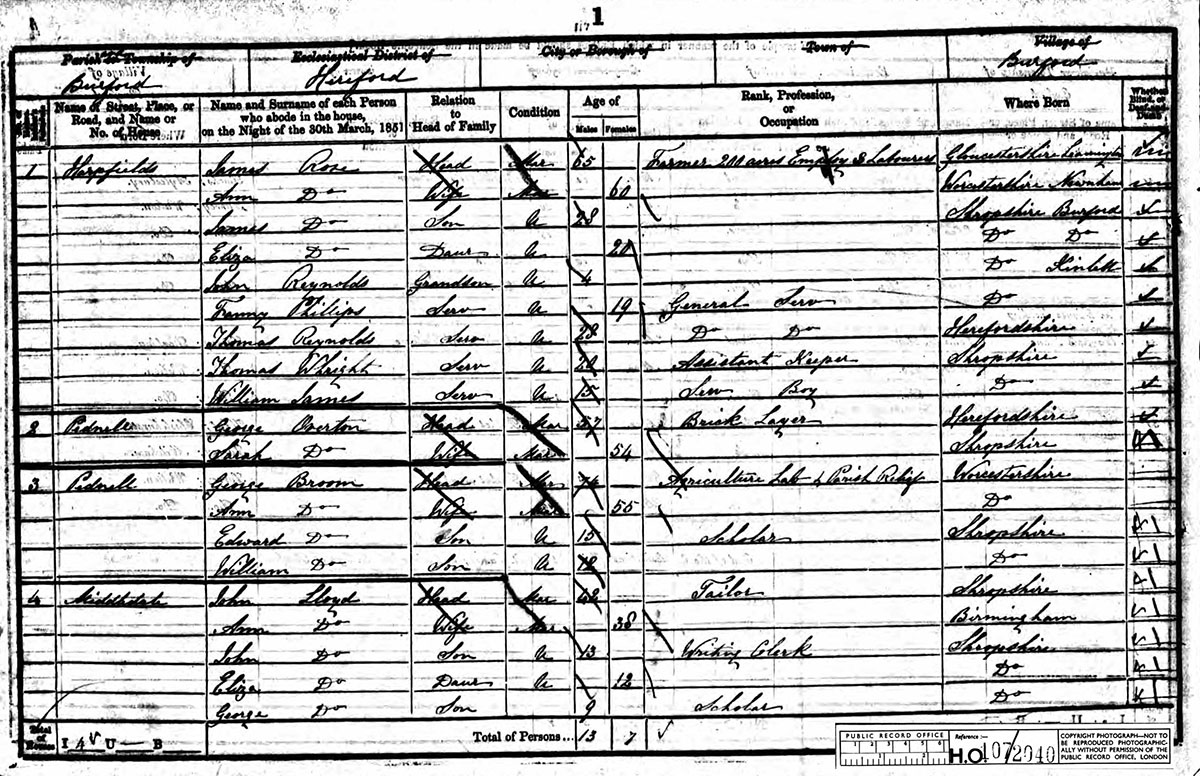 1
Parish or Township of Ecclesiastical District of City or Borough of Town of Village of
Burford Hereford Burford
Name of Street, Place, or Road, and Name or No. of House
Name and Surname of each Person who abode in the house, on the Night of the 30th March, 1851
Relation to Head of Family
Condition
Age of
Males Females
Rank, Profession, or Occupation
Where Born
Whether Blind, or Deaf-and-Dumb
1 Harpfields James Rose Head Mar 65 Farmer 200 acres Employ 3 Labourers Gloucestershire
Ann Do Wife Mar 60 Worcestershire Newnham
James Do Son U 28 Shropshire Burford
Eliza Do Daur U 20 Do Do
John Reynolds Grandson U 4 Do Kinlett
Fanny Phillips Serv U 19 General Serv Do
Thomas Reynolds Serv U 28 Do Do Herefordshire
Thomas Whright Serv U 20 Assistant Keeper Shropshire
William James Serv U 15 Serv Boy Do
2 George Overton Head Mar 57 Brick Layer Herefordshire
Sarah Do Wife Mar 54 Shropshire
3 George Broom Head Mar 74 Agriculture Lab & Parish Relief Worcestershire
Ann Do Wife Mar 55 Do
Edward Do Son U 15 Scholar Shropshire
William Do Son U 12 Do
4 John Lloyd Head Mar 42 Tailor Shropshire
Ann Do Wife Mar 38 Birmingham
John Do Son U 13 Writing Clerk Shropshire
Eliza Do Daur U 12 Do
George Do Son 9 Scholar Do
Total of Houses I 4 U — B Total of Persons ... 13 7
PUBLIC RECORD OFFICE
1 2 3 4 5 6
Reference :—
H.O. 107/2040
COPYRIGHT PHOTOGRAPH—NOT TO
BE REPRODUCED PHOTOGRAPHIC-
ALLY WITHOUT PERMISSION OF THE
PUBLIC RECORD OFFICE, LONDON